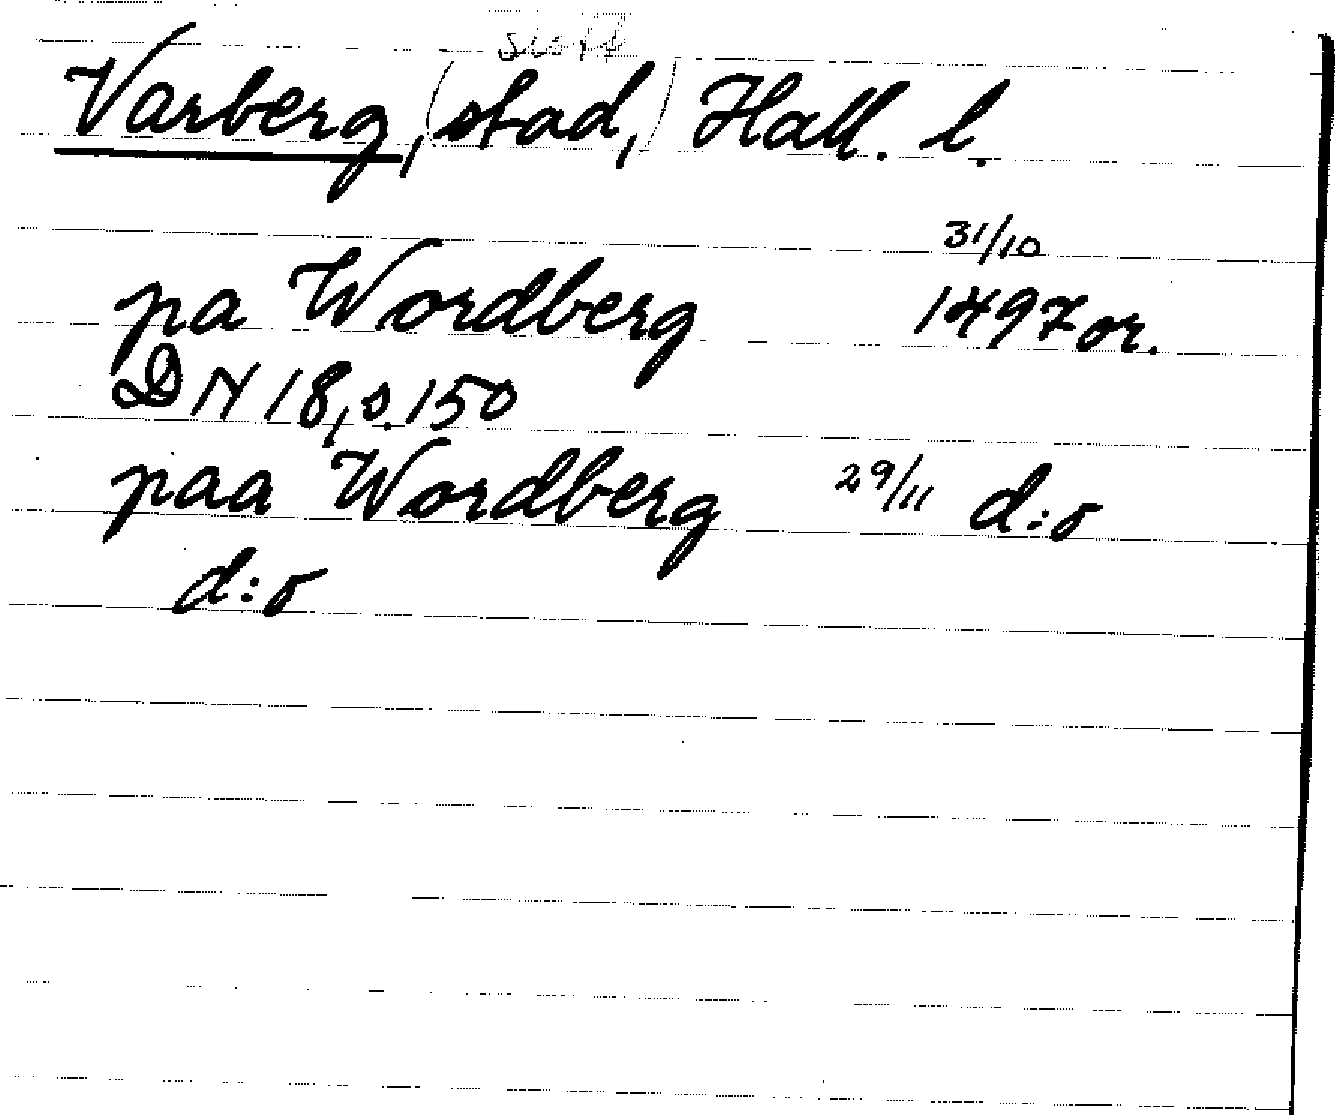 slott
Varberg, (stad,) Hall. l.
31/10
pa Wordberg 1497 or.
DN 18, s. 150
paa Wordberg 29/11 d:o
d:o